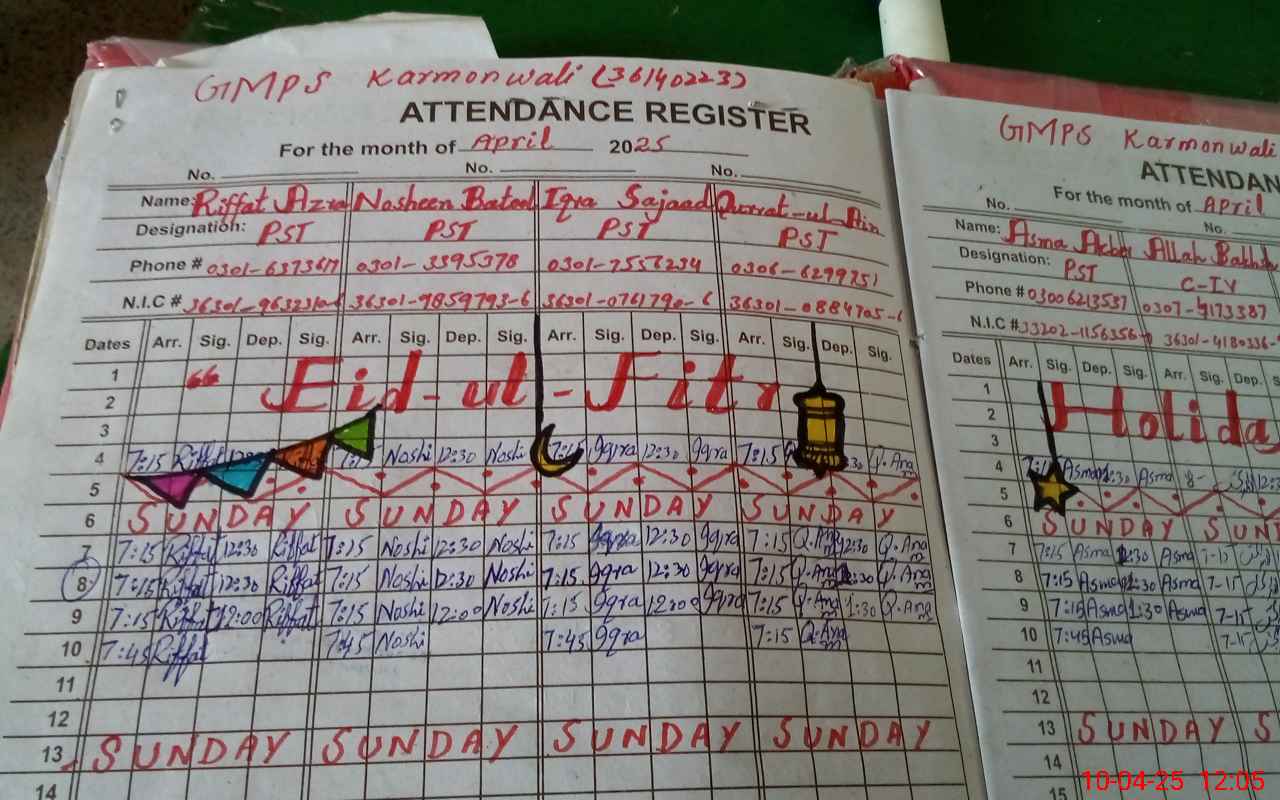 GMPS Karmonwali (36140223)
ATTENDANCE REGISTER
For the month of April 2025
No. No. No.
Name: Riffat Azra Nosheen Batool Iqra Sajaad Qurrat-ul-Ain
Designation: PST PST PST PST
Phone # 0301-6373617 0301-3395378 0301-7556234 0306-6299751
N.I.C # 36301-9859793-6 36301-0761790-6 36301-0884705-6
Dates Arr. Sig. Dep. Sig. Arr. Sig. Dep. Sig. Arr. Sig. Dep. Sig. Arr. Sig. Dep. Sig.
1
2 " Eid-ul-Fitr
3
4 7:15 Riffat 7:15 Noshi 12:30 Noshi 7:15 Iqra 12:30 Iqra 7:15 Q.Ann
5
6 SUNDAY SUNDAY SUNDAY SUNDAY
7 7:15 Riffat 12:30 Riffat 7:15 Noshi 12:30 Noshi 7:15 Iqra 12:30 Iqra 7:15 Q.Ann 12:30 Q.Ann
8 7:15 Riffat 12:30 Riffat 7:15 Noshi 12:30 Noshi 7:15 Iqra 12:30 Iqra 7:15 Q.Ann 12:30 Q.Ann
9 7:15 Riffat 12:00 Riffat 7:15 Noshi 12:00 Noshi 7:15 Iqra 12:00 Iqra 7:15 Q.Ann 1:30 Q.Ann
10 7:45 Riffat 7:45 Noshi 7:45 Iqra 7:15 Q.Ann
11
12
13 SUNDAY SUNDAY SUNDAY SUNDAY
14
GMPS Karmonwali
ATTENDAN
For the month of April
No. No.
Name: Asma Akber Allah Bakhsh
Designation: PST C-IV
Phone # 03006213537 0307-4173387
N.I.C # 33202-1156356- 36301-4180336-
Dates Arr. Sig. Dep. Sig. Arr. Sig. Dep.
1
2 Holida
3
4 Asma 1:30 Asma 8-
5
6 SUNDAY SUN
7 7:15 Asma 1:30 Asma 7-15
8 7:15 Asma 12:30 Asma 7-15
9 7:15 Asma 1:30 Asma 7-15
10 7:45 Asma 7-15
11
12
13 SUNDAY S
14
15
10-04-25 12:05